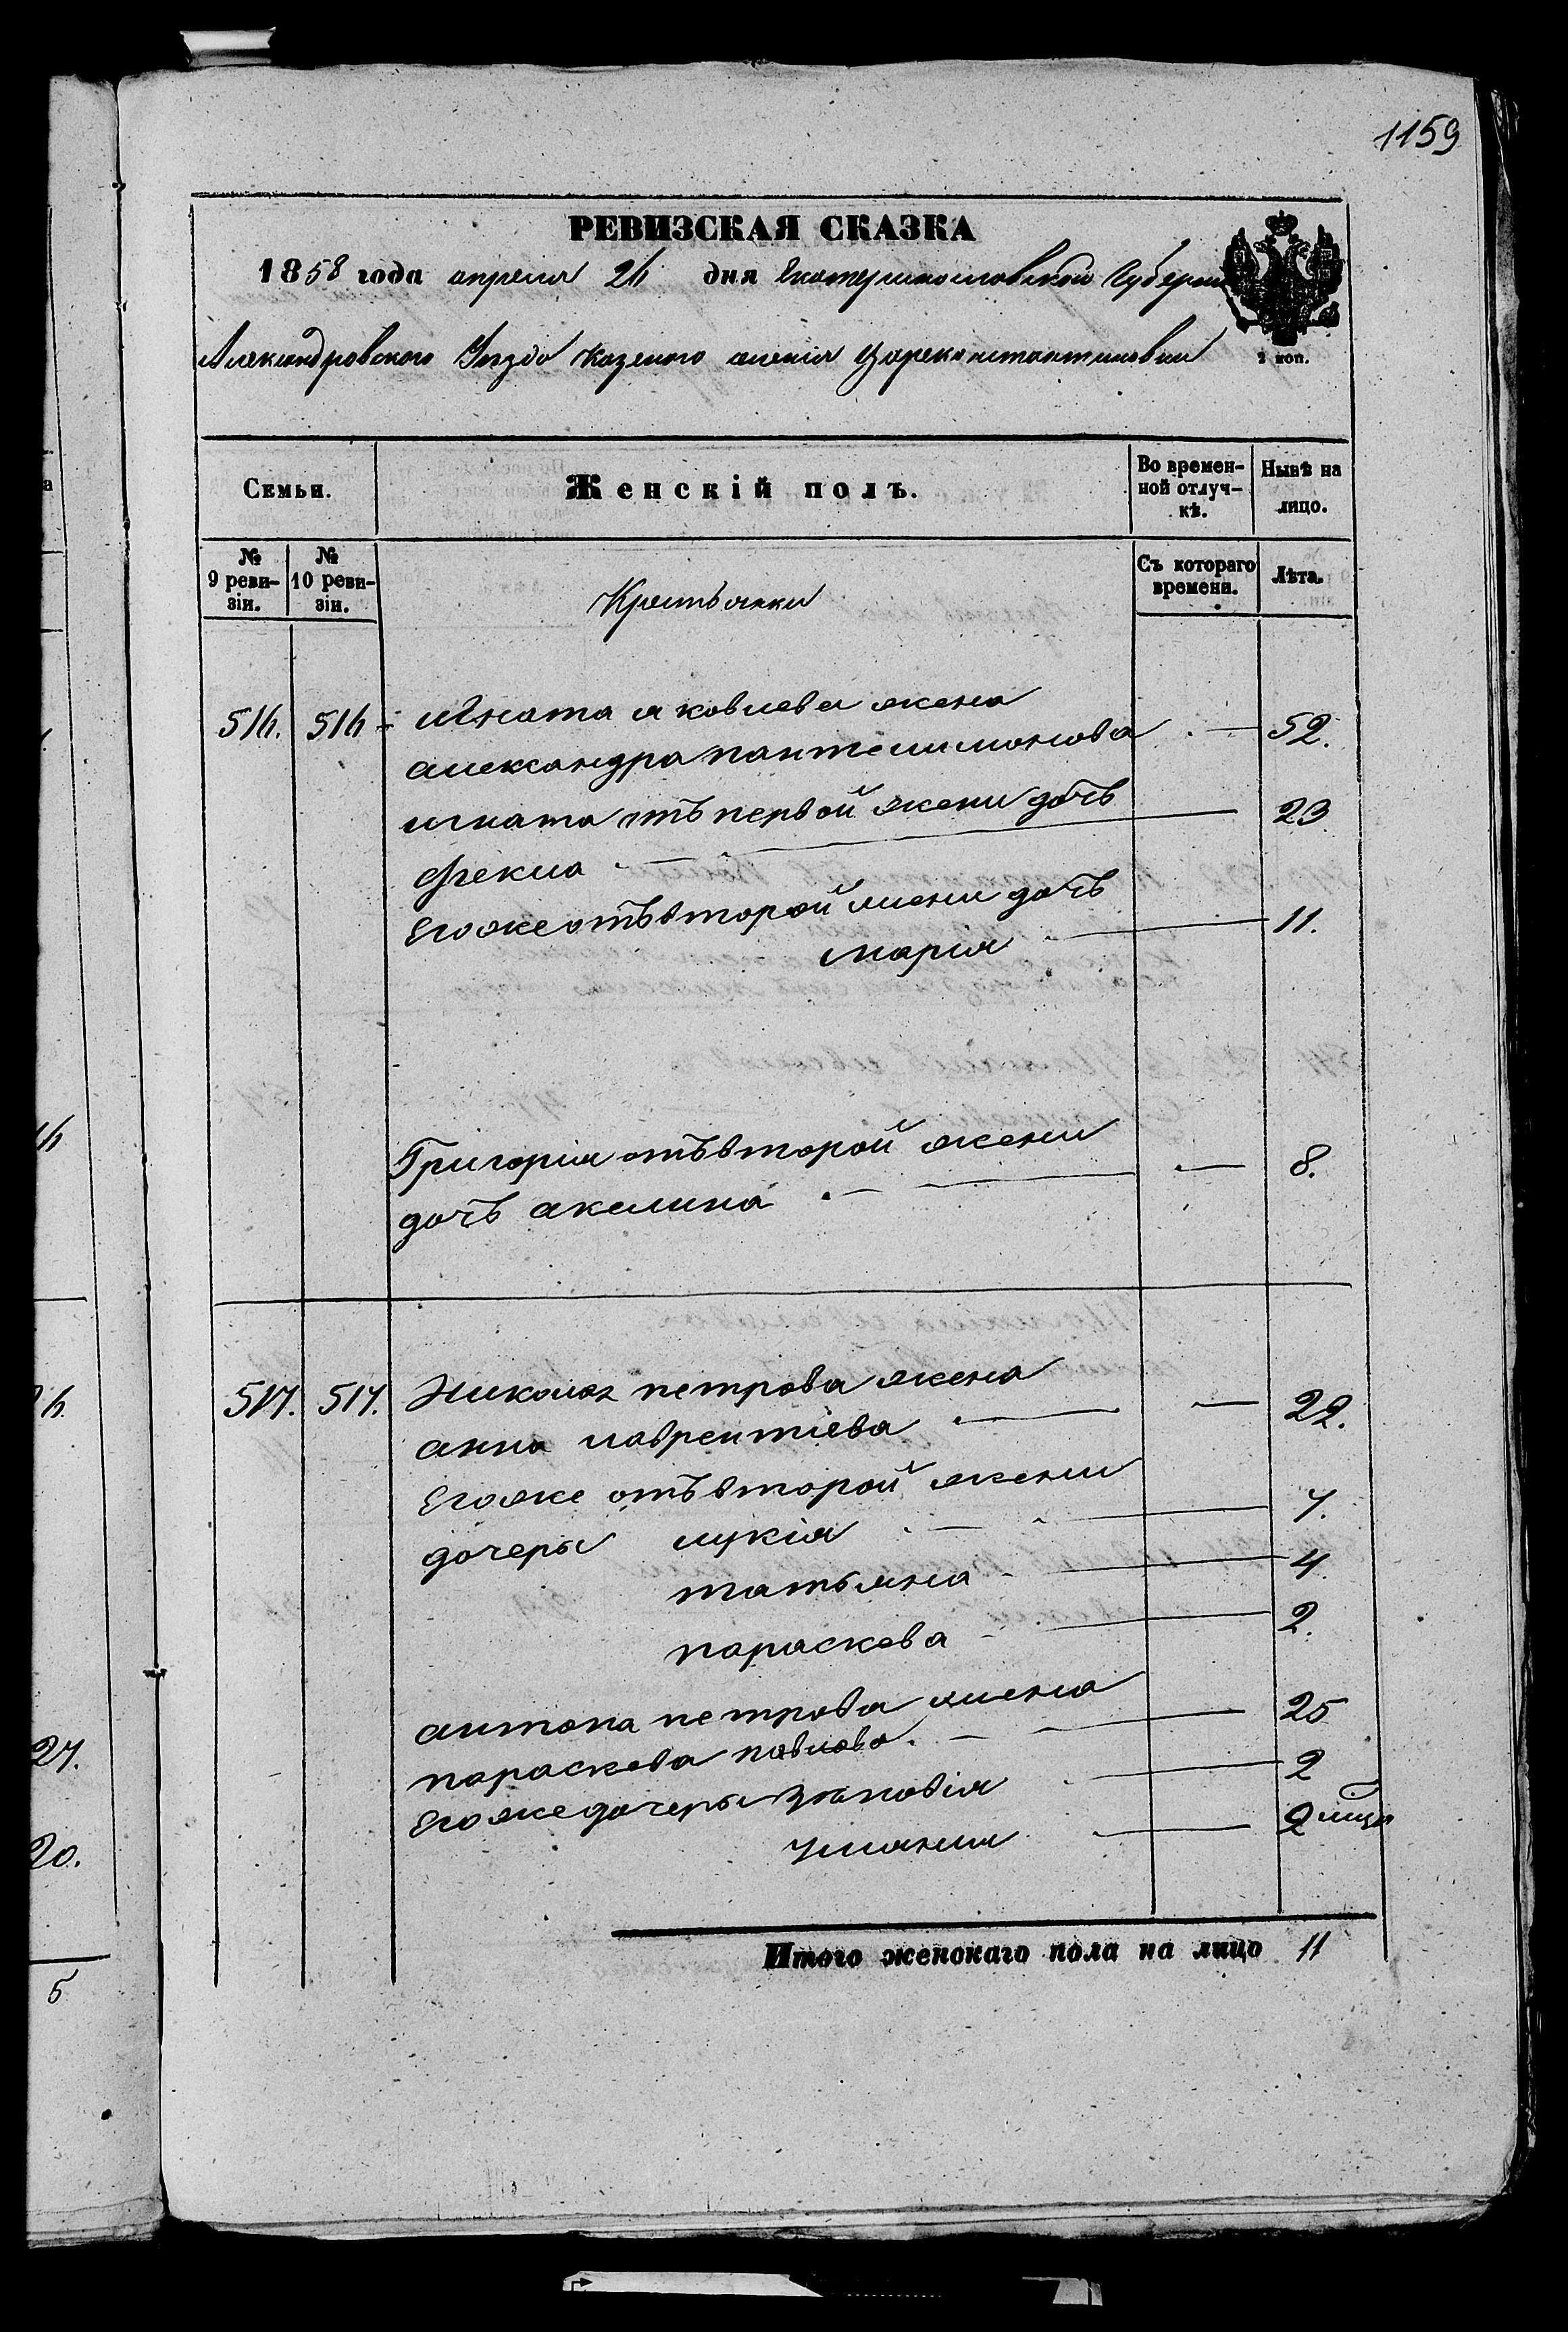 1159
РЕВИЗСКАЯ СКАЗКА
1858 года апреля 26 дня Екатеринославской Губернии
Александровского Уезда Казеного селения Цареконстантиновки
2 коп.
Семьи.
Женскій полъ.
Во времен-
ной отлуч-
кѣ.
Нынѣ на
лицо.
№
9 реви-
зіи.
№
10 реви-
зіи.
Крестьянки
Съ котораго
времени.
Лѣта.
516. 516 Игната яковлева жена
александра пантелимонова 52.
игната отъ первой жени дочъ 23
фекла
Егоже отъ второй жени дочъ
марія 11.
Григорія отъ второй жени
дочъ акелина 8.
517. 517. Николая петрова жена
анна лаврентіева 22.
Егоже отъ второй жени
дочеры лукія 7.
татьяна 4.
параскева 2.
антона петрова жена
параскева павлова. 25
Егоже дочеры зіновія 2
2 мицъ
Итого женскаго пола на лицо 11
6
6.
27.
20.
5